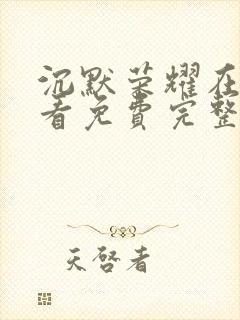 沉默荣耀在
看免费完整
天启者